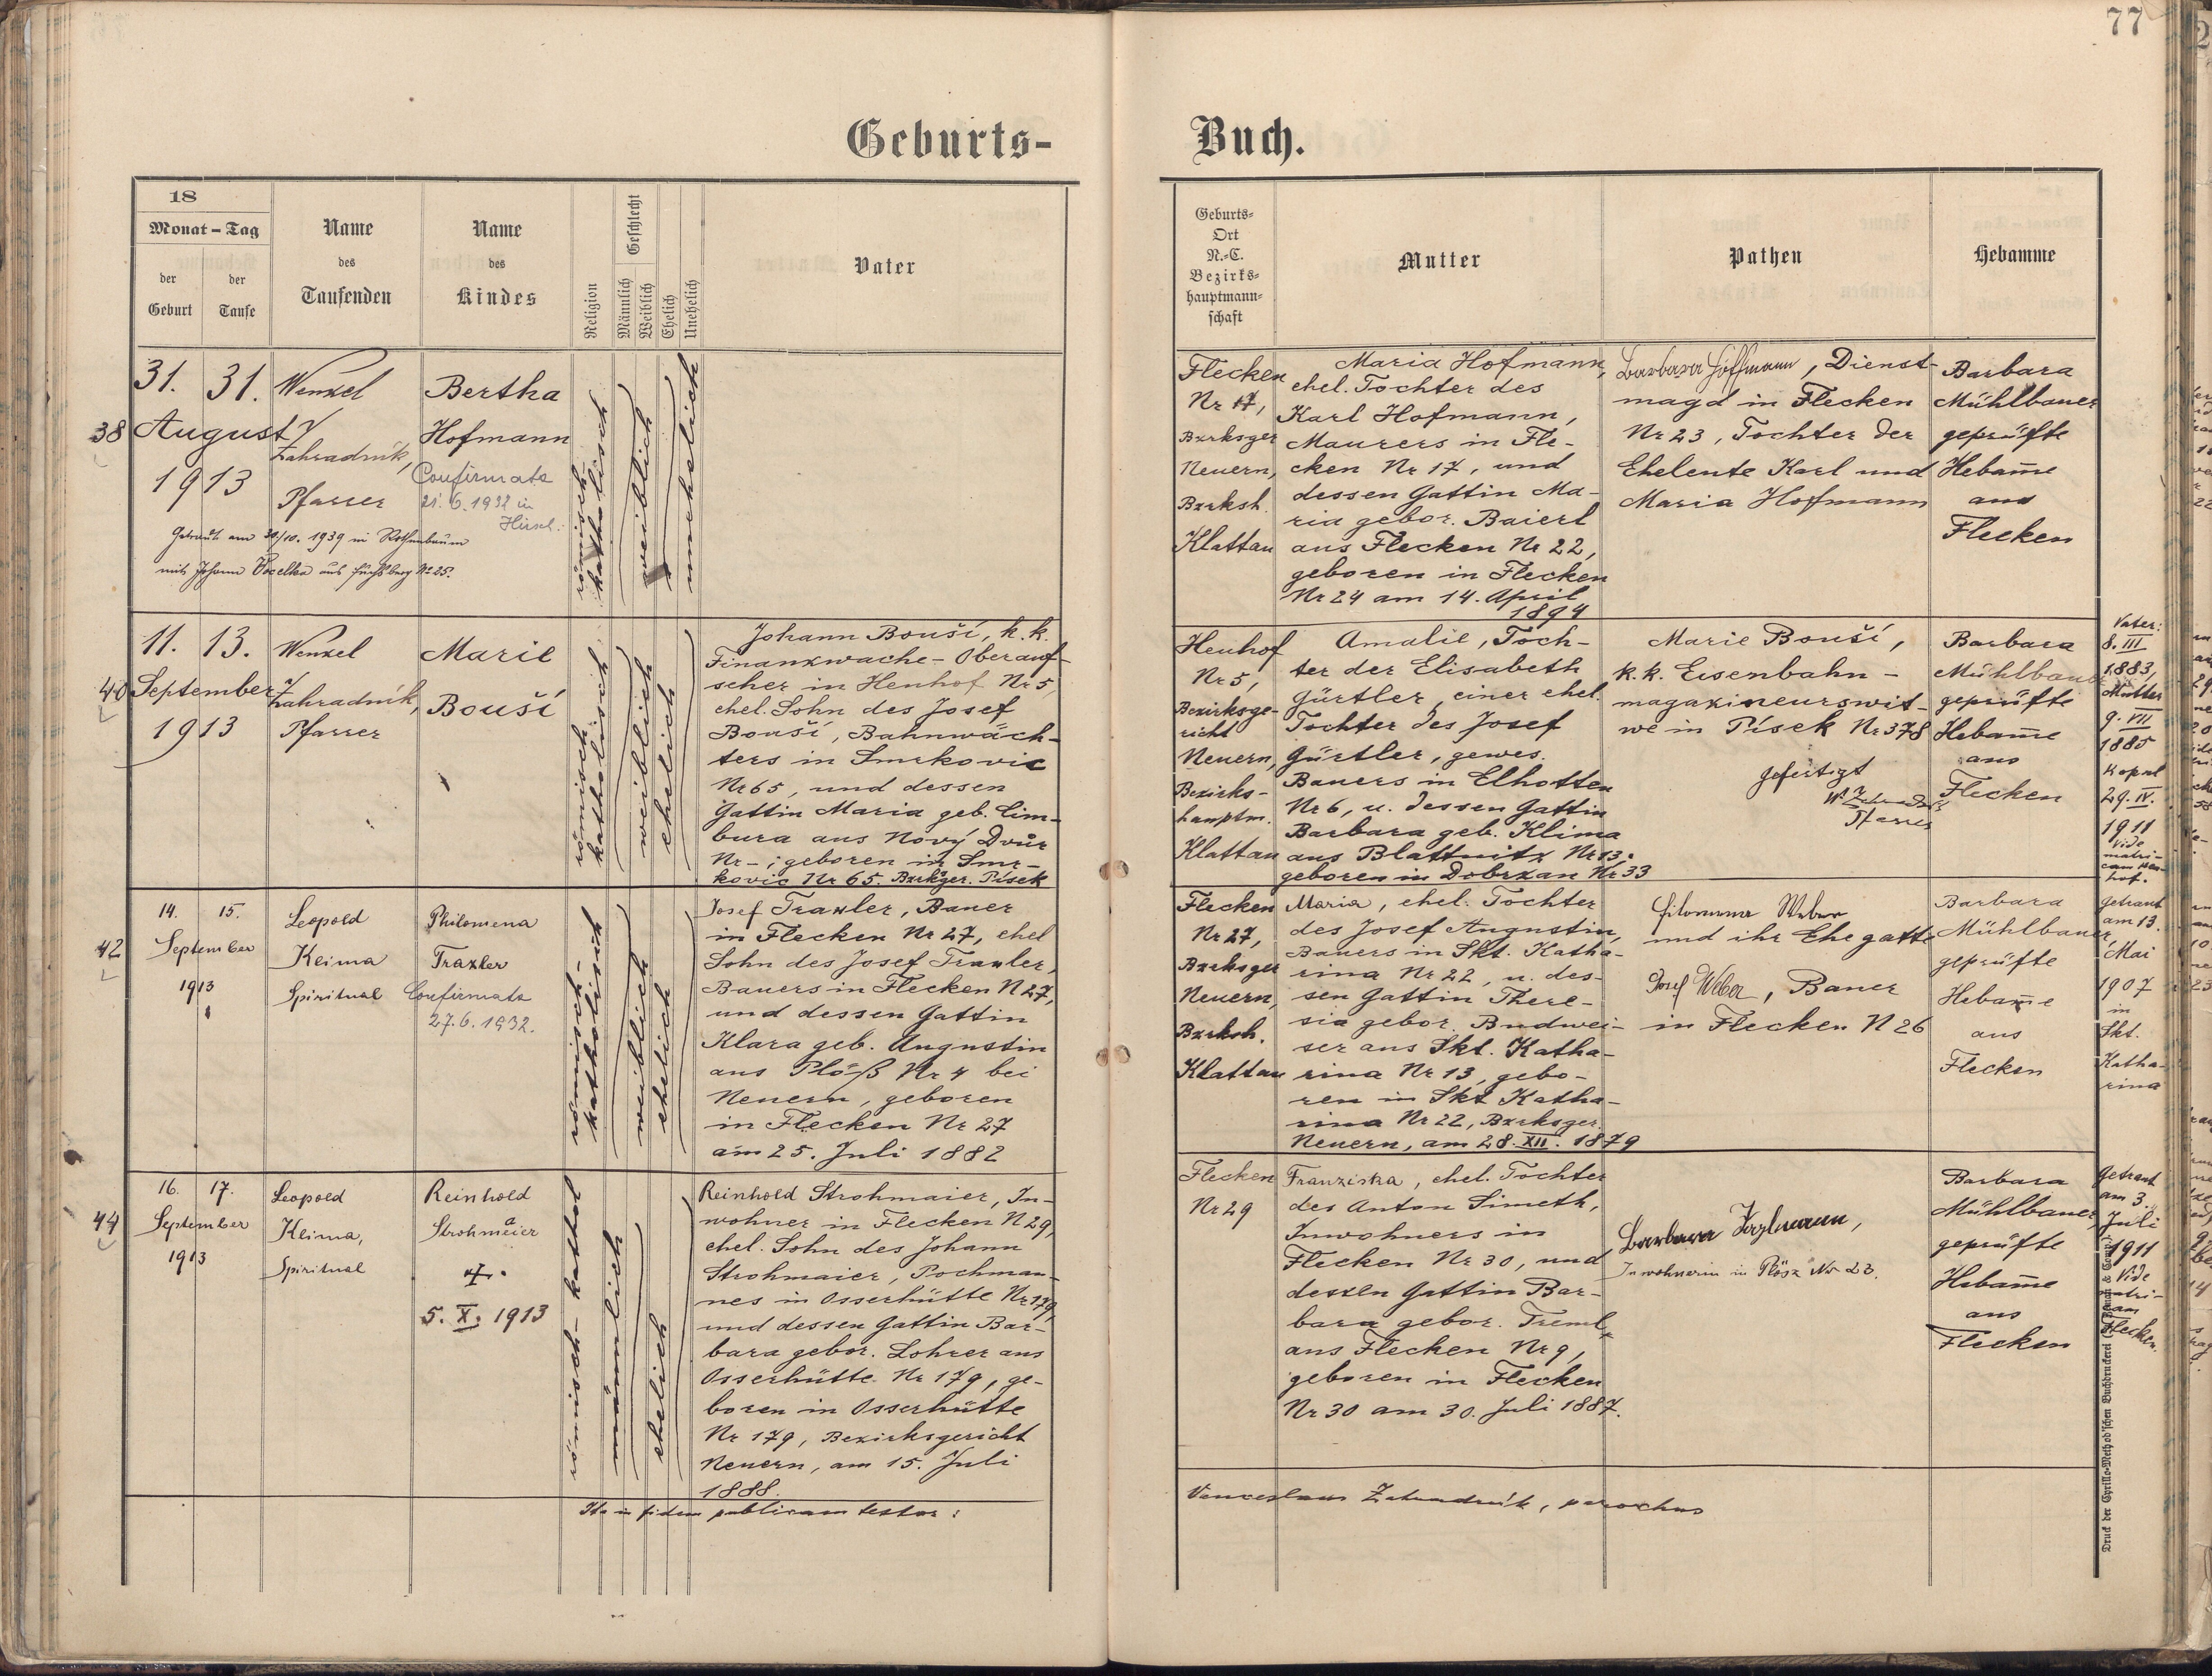 77
Geburts-
Buch.
18
Monat - Tag
der
Geburt
der
Taufe
Name
des
Taufenden
Name
des
Kindes
Religion
Geschlecht
Männlich
Weiblich
Ehelich
Unehelich
Vater
Geburts-
Ort
N.-C.
Bezirks-
hauptmann-
schaft
Mutter
Pathen
Hebamme
38
31. 31.
August
1913
Wenzel
Zahradník,
Pfarrer
Bertha
Hofmann
Confirmata
21. 6. 1932 in
Getraut am 30/10. 1939 in Rothenbaum
mit Johann Vocelka aus Fuchsberg No 25.
römisch-
katholisch
weiblich
unehelich
Flecken
Nr 17,
Bzrksger
Neuern,
Bzrksh.
Klattau
Maria Hofmann,
ehel. Tochter des
Karl Hofmann,
Maurers in Fle-
cken Nr 17, und
dessen Gattin Ma-
ria gebor. Baierl
aus Flecken Nr 22,
geboren in Flecken
Nr 24 am 14. April
1894
Barbara Hoffmann, Dienst-
magd in Flecken
Nr 23, Tochter der
Eheleute Karl und
Maria Hofmann
Barbara
Mühlbauer
geprüfte
Hebam̅e
aus
Flecken
40
11. 13.
September
1913
Wenzel
Zahradník,
Pfarrer
Marie
Bouší
römisch
katholisch
weiblich
ehelich
Johann Bouší, k. k.
Finanzwache-Oberauf-
seher in Heuhof Nr 5,
ehel. Sohn des Josef
Bouší, Bahnwäch-
ters in Smrkovic
Nr 65, und dessen
Gattin Maria geb. Cim-
bura aus Nový Dvůr
Nr - ; geboren in Smr-
kovic Nr 65. Bzrksger. Písek
Heuhof
Nr 5,
Bezirksge-
richt
Neuern,
Bezirks-
hauptm.
Klattau
Amalie, Toch-
ter der Elisabeth
Gürtler, einer ehel.
Tochter des Josef
Gürtler, gewes.
Bauers in Elhotten
Nr 6, u. dessen Gattin
Barbara geb. Klima
aus Blattnitz Nr 13.
geboren in Dobrzan Nr 33
Marie Bouší,
k. k. Eisenbahn-
magazineurswit-
we in Písek Nr 378
gefertigt
W. Zahradník
Pfarrer
Barbara
Mühlbauer
geprüfte
Hebam̅e
aus
Flecken
Vater:
8. III
1883,
Mutter
9. VII
1885
Kopul
29. IV.
1911
Vide
matri-
cam Heu-
hof.
42
14. 15.
September
1913
Leopold
Kleima
Spiritual
Philomena
Traxler
Confirmata
27. 6. 1932.
römisch-
katholisch
weiblich
ehelich
Josef Traxler, Bauer
in Flecken Nr 27, ehel
Sohn des Josef Traxler,
Bauers in Flecken N 27,
und dessen Gattin
Klara geb. Augustin
aus Plöß Nr 4 bei
Neuern, geboren
in Flecken Nr 27
am 25. Juli 1882
Flecken
Nr 27,
Bzrksger
Neuern,
Bzrksh.
Klattau
Maria, ehel. Tochter
des Josef Augustin,
Bauers in Skt. Katha-
rina Nr 22, u. des-
sen Gattin There-
sia gebor. Budwei-
ser aus Skt. Katha-
rina Nr 13, gebo-
ren in Skt Katha-
rina Nr 22, Bzrksger.
Neuern, am 28. XII. 1879
Filomena Weber
und ihr Ehegatte
Josef Weber, Bauer
in Flecken N 26
Barbara
Mühlbauer,
geprüfte
Hebam̅e
aus
Flecken
Getraut
am 13.
Mai
1907
in
Skt.
Katha-
rina
44
16. 17.
September
1913
Leopold
Kleima,
Spiritual
Reinhold
Strohmaier
5. X. 1913
römisch-kathol
männlich
ehelich
Reinhold Strohmaier, In-
wohner in Flecken N 29,
ehel. Sohn des Johann
Strohmaier, Pochman-
nes in Osserhütte Nr 179,
und dessen Gattin Bar-
bara gebor. Lohrer aus
Osserhütte Nr 179, ge-
boren in Osserhütte
Nr 179, Bezirksgericht
Neuern, am 15. Juli
1888.
Flecken
Nr 29
Franziska, ehel. Tochter
des Anton Simeth,
Inwohners in
Flecken Nr 30, und
dessen Gattin Bar-
bara gebor. Treml
aus Flecken Nr 9,
geboren in Flecken
Nr 30 am 30. Juli 1887.
Barbara
Inwohnerin in Plösz No 23.
Barbara
Mühlbauer
geprüfte
Hebam̅e
aus
Flecken
Getraut
am 3.
Juli
1911
Vide
matri-
cam
Flecken.
Ita in fidem publicam testor:
Venceslaus Zahradník, parochus
Druck der Cyrillo-Method'schen Buchdruckerei